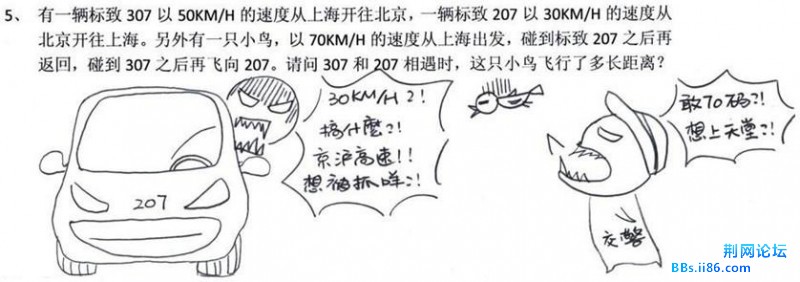 5、 有一辆标致 307 以 50KM/H 的速度从上海开往北京，一辆标致 207 以 30KM/H 的速度从
北京开往上海。另外有一只小鸟，以 70KM/H 的速度从上海出发，碰到标致 207 之后再
返回，碰到 307 之后再飞向 207。请问 307 和 207 相遇时，这只小鸟飞行了多长距离？
30KM/H?!
搞什麼?!
京沪高速!!
想被抓咩?!
敢70码?!
想上天堂?!
207
交警
荆网论坛
BBs.ii86.com